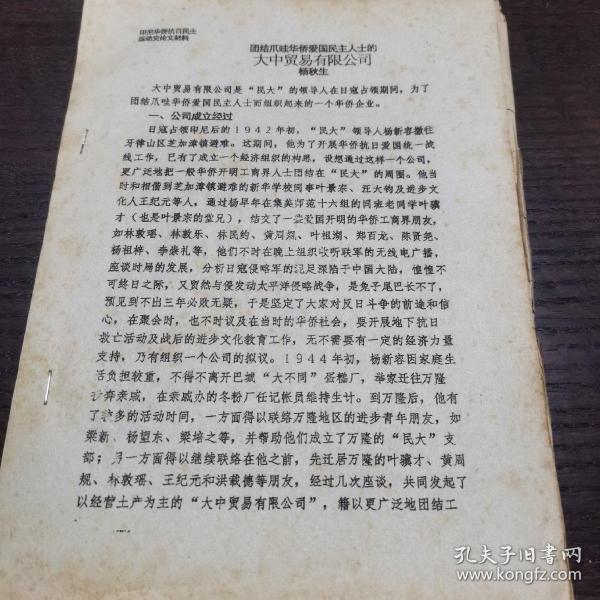 印尼华侨抗日民主
运动史论文材料
团结爪哇华侨爱国民主人士的
大中贸易有限公司
杨秋生
大中贸易有限公司是“民大”的领导人在日寇占领期间，为了
团结爪哇华侨爱国民主人士而组织起来的一个华侨企业。
一、公司成立经过
日寇占领印尼后的1942年初，“民大”领导人杨新容撤往
牙律山区芝加漳镇避难。这期间，他为了开展华侨抗日爱国统一战
线工作，已有了成立一个经济组织的构思，设想通过这样一个公司，
更广泛地把一般华侨开明工商界人士团结在“民大”的周围。他当
时和相偕到芝加漳镇避难的新华学校同事叶景宗、汪大钧及进步文
化人王纪元等人，通过杨早年在集美师范十六组的同班老同学叶骥
才（也是叶景宗的堂兄），结交了一些爱国开明的华侨工商界朋友，
如林敦瑶、林敦乐、林民约、黄周规、叶祖潮、郑百龙、陈贤尧、
杨祖梓、李崇礼等，他们不时在晚上组织收听联军的无线电广播，
座谈时局的发展，分析日寇侵略军的泥足深陷于中国大陆，惶惶不
可终日之际，又贸然与侵发动太平洋侵略战争，是兔子尾巴长不了，
预见到不出三年必败无疑，于是坚定了大家对反日斗争的前途和信
心，在聚会时，也不时议及在当时的华侨社会，要开展地下抗日
救亡活动及战后的进步文化教育工作，无不需要有一定的经济力量
支持，乃有组织一个公司的拟议。1944年初，杨新容因家庭生
活负担较重，不得不离开巴城“大不同”蛋糕厂，举家迁往万隆
奔亲戚，在亲戚办的冬粉厂任记帐员维持生计。到万隆后，他有
了较多的活动时间，一方面得以联络万隆地区的进步青年朋友，如
梁新、杨望东、梁培之等，并帮助他们成立了万隆的“民大”支
部；另一方面得以继续联络在他之前，先迁居万隆的叶骥才、黄周
规、林敦瑶、王纪元和洪载德等朋友，经过几次座谈，共同发起了
以经营土产为主的“大中贸易有限公司”，藉以更广泛地团结工
孔夫子旧书网
www.kongfz.com